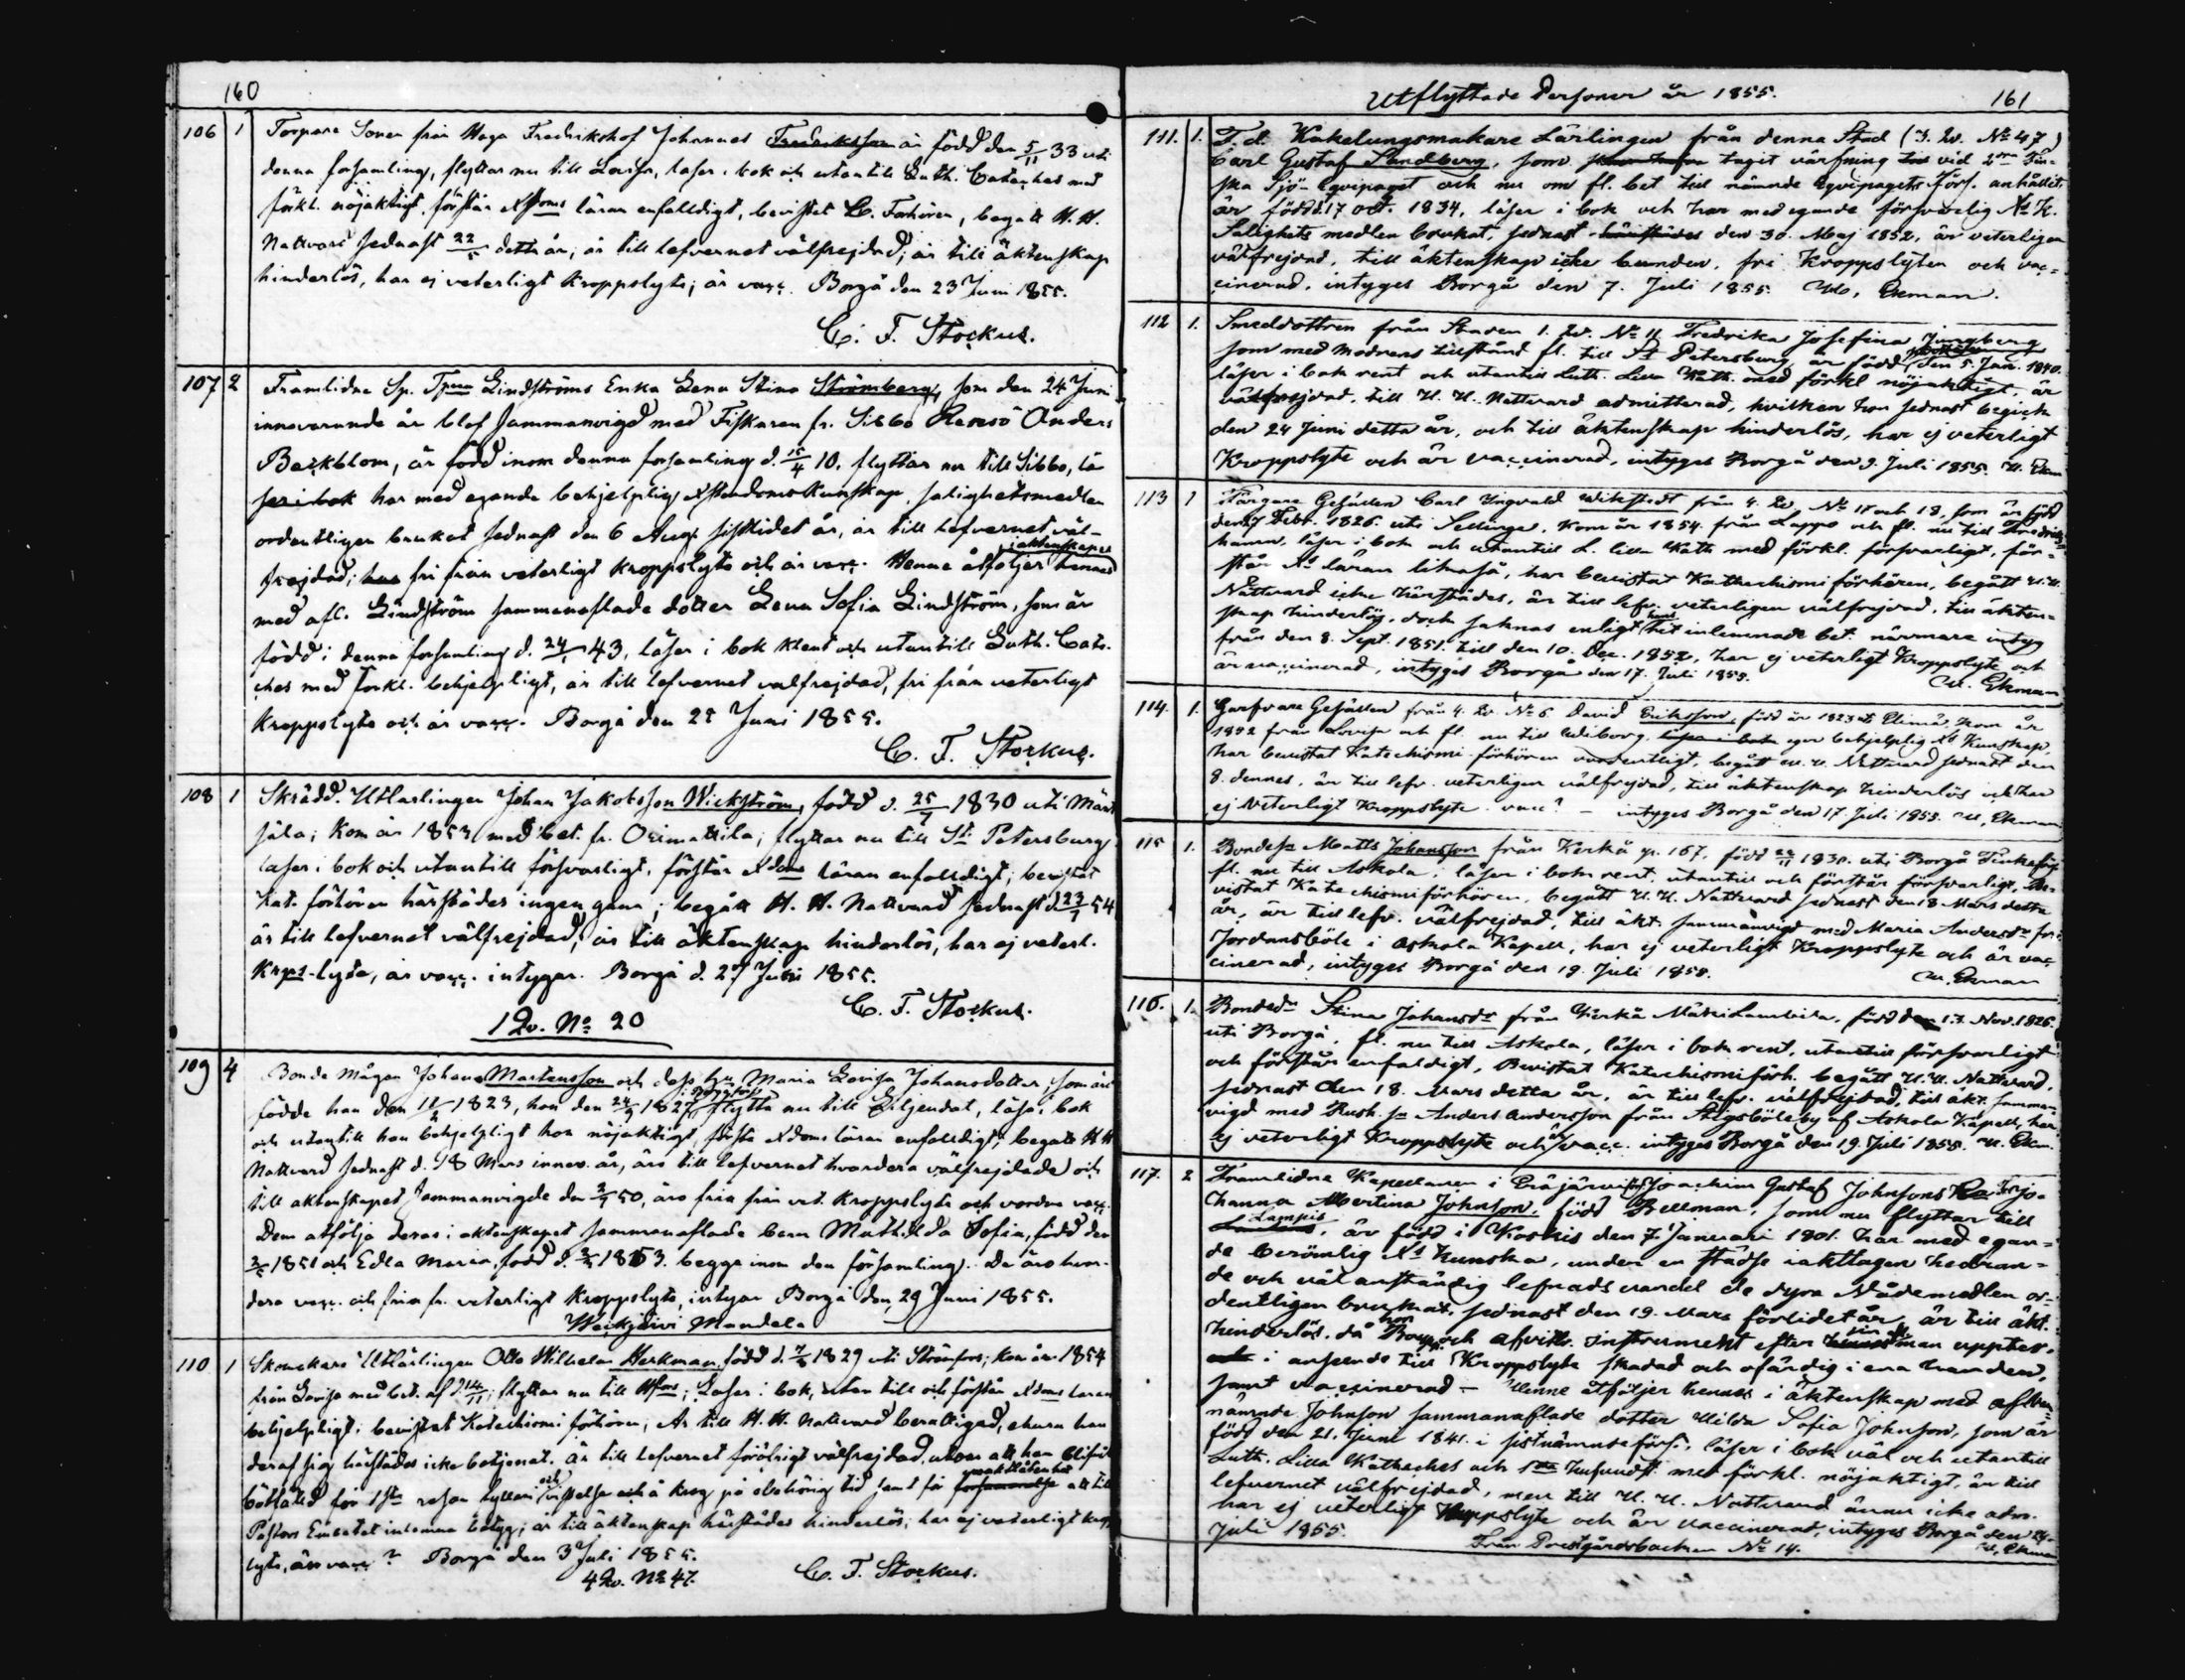 160
106 1 Torpare Sonen från Haga Fredrikshof Johannes Fredriksson är född den 5/11 33 uti
denna församling, flyttar nu till Lovisa, läser i bok och utantill Luth. Cateches med
förkl. nöjaktigt, förstår Xstoms läran enfalldigt, bevistat C. Förhören, begått H. H.
Nattvard sednast 22/5 detta år; är till lefvernet välfrejdad; är till äktenskap
hinderlös, har ej veterligt Kroppslyte; är vacc. Borgå den 23 Juni 1855.
C. F. Stockus.
107 2 Framlidne Sp. Lindströms Enka Lena Stina Strömberg, som den 24 Juni
innevarande år blef Sammanvigd med Fiskaren fr. Sibbo Anders
Backblom, är född inom denna församling d. 15/4 10, flyttar nu till Sibbo, lä
ser i bok har med egande behjelplig Xstendoms Kunskap, salighetsmedlen
ordentligen brukat sednast den 6 Aug. sistlidet år, är till lefvernet väl-
frejdad; fri från veterligt kroppslyte och är vacc. Henne åtföljer hennes i äktenskapet
med afl. Lindström sammanaflade dotter Lena Sofia Lindström, som är
född i denna församling d. 24/1 43, läser i bok rent och utantill Luth. Cate-
ches med förkl. behjelpligt, är till lefvernet välfrejdad, fri från veterligt
kroppslyte och är vacc. Borgå den 25 Juni 1855.
C. F. Stockus.
108 1 Skrädd. Utlärlingen Johan Jakobsson Wickström, född d. 25/7 1830 uti Mänt
säla; kom år 1853 med bet. fr. Orimattila; flyttar nu till St. Petersburg
läser i bok och utantill försvarligt, förstår Xdoms läran enfalldigt; bevistat
Kat. förhören härstädes ingen gång; begått H. H. Nattvard sednast d. 23/7 54
är till lefvernet välfrejdad; är till äktenskap hinderlös, har ej veterl.
Krps-lyte, är vacc. intygar. Borgå d. 27 Juni 1855.
C. F. Stockus.
1 Qv. No 20
109 4 Bonde Mågen Johan Martensson och dess Hu Maria Lovisa Johansdotter, som äro
födde han den 11/2 1823, hon den 24/5 1827, flytta nu till Liljendal, läsa i bok
och utantill han behjelpligt hon nöjaktigt, förstå Xdoms läran enfalldigt; begått H H
Nattvard sednast d. 18 Mars innev. år, äro till lefvernet hvardera välfrejdade och
till äktenskapet Sammanvigde den 2/7 50, äro fria från vet. Kroppslyte och vordne vacc.
Dem åtfölja deras i äktenskapet sammanaflade barn Mathilda Sofia, född den
3/5 1851 och Edla Maria, född d. 3/5 1853. begge inom den församling. De äro hvar-
dera vacc. och fria fr. veterligt Kroppslyte, intygar Borgå den 29 Juni 1855.
Weckjärvi Mandela
110 1 Skomakare Utlärlingen Otto Wilhelm Herkman, född d. 7/5 1829 uti Strömfors; kom år 1854
från Lovisa med bet. af d. 14/11; flyttar nu till Hfors; Läser i bok, utantill och förstår Xdoms läran
behjelpligt; bevistat Katechismi förhören; Är till H. H. Nattvard berättigad, ehuru han
deraf sig härstädes icke betjenat. är till lefvernet föröfrigt välfrejdad, utom att han blifvit
bötfälld för 1sta resan fylleri och å krog på obehörig tid samt för att till
Pastors Embetet inlemna betyg; är till äktenskap härstädes hinderlös; har ej veterligt kropps
lyte, är vacc? Borgå den 3 Juli 1855.
4 Qv. No 47. C. F. Stockus.
Utflyttade Personer år 1855. 161
111. 1. F. d. Kakelungsmakare Lärlingen från denna Stad (3. Qv. No 47)
Carl Gustaf Sandberg, som tagit värfning vid 2dra Fin-
ska Sjö-Eqvipaget och nu om fl. bet till nämnde Eqvipagets Förs. anhållit
är född d. 17 Oct. 1834, läser i bok och har med egande försvarlig
Salighets medlen brukat, sednast den 30. Maj 1852, är veterligen
välfrejdad, till äktenskap icke bunden, fri Kroppslyten och vac-
cinerad, intyges Borgå den 7. Juli 1855. W. Ekman.
112 1. Smeddottren från Staden 1. Qv. No 11 Fredrika Josefina Ljungberg
som med modrens tillstånd fl. till St Petersburg, är född den 5. Jan. 1840.
läser i bok rent och utantill Luth. Lilla Kath. med förkl nöjaktigt, är
välfrejdad, till H. H. Nattvard admitterad, hvilken hon sednast begick
den 24 Juni detta år, och till äktenskap hinderlös, har ej veterligt
Kroppslyte och är vaccinerad, intyges Borgå den 9. Juli 1855. W. Ekm
113 1 Färgare Gesällen Carl Ingvald Wikstedt från 4. Qv. No 11 och 18, som är född
den 7 Febr. 1826. uti Sellinge, kom år 1854. från Lappo och fl. nu till Fredriks-
hamn, läser i bok och utantill L. lilla Kath med förkl. försvarligt, för-
står Xs läran likaså, har bevistat Kathechismi förhören, begått H. H.
Nattvard icke härstädes, är till lefv. veterligen välfrejdad, till äkten-
skap hinderlös, dock saknas enligt hit inlemnade bet. närmare intyg
från den 8. Sept. 1851. till den 10. Dec. 1852, har ej veterligt Kroppslyte och
är vaccinerad, intyges Borgå den 17. Juli 1855. W. Ekman
114. 1. Garfvare Gesällen från 4. Qv. No 6 David Eriksson, född år 1823 uti Elimä, kom år
1852 från Lovisa och fl. nu till Wiborg, läser i bok eger behjelplig Xd Kunskap,
har bevistat Katechismi förhören ordentligt, begått H. H. Nattvard sednast den
8. dennes, är till lefv. veterligen välfrejdad, till äktenskap hinderlös och har
ej veterligt Kroppslyte vacc? – intyges Borgå den 17. Juli 1855. W. Ekman
115 1. Bondes. Matts Johansson från Kerkå p. 167, född 22/11 1830. uti Borgå Finska förs.
fl. nu till Askola, läser i bok rent, utantill och förstår försvarligt, be-
vistat Katechismi förhören, begått H. H. Nattvard sednast den 18 Mars detta
år, är till lefv. välfrejdad, till äkt. sammanvigd med Maria Andersdr från
Jordansböle i Askola Kapell, har ej veterligt Kroppslyte och är vac
cinerad; intyges Borgå den 19. Juli 1855. W. Ekman
116. 1. Bondedr Stina Johansdr från Kerkå född den 13. Nov. 1826.
uti Borgå, fl. nu till Askola, läser i bok rent, utantill försvarligt
och förstår enfaldigt, Bevistat Katechismi förh. begått H. H. Nattvard.
sednast den 18. Mars detta år, är till lefv. välfrejdad, till äkt. samman-
vigd med Rusth. sn Anders Andersson från Stigsböle by af Askola Kapell, har
ej veterligt Kroppslyte och är vacc. intyges Borgå den 19. Juli 1855. W. Ekm.
117. 2 Framlidne Kapellanen i Eräjärvi Joachim Gustaf Johnsons Enka Jo-
hanna Albertina Johnson, född Bellman, som nu flyttar till
Lampis, är född i Koskis den 7. Januari 1801. har med egan-
de berömlig Xd Kunska, under en städse iakttagen hedran-
de och väl anständig lefnads vandel de dyra Nådemedlen or-
dentligen brukat, sednast den 19. Mars förlidet år, är till äkt.
hinderlös, då hon Boupp. och afvittr. instrument efter sin afl. man upptet,
i anseende till Kroppslyte skadad och ofärdig i ena handen,
samt vaccinerad – Henne åtföljer hennes i äktenskap med ofvan-
nämnde Johnson sammanaflade dotter Hilda Sofia Johnson, som är
född den 21. Juni 1841. i sistnämnde förs., läser i bok väl och utantill
Luth. Lilla Katheches och med förkl. nöjaktigt, är till
lefvernet välfrejdad, men till H. H. Nattvard ännu icke adm.
har ej veterligt Kroppslyte och är vaccinerad, intyges Borgå den
Juli 1855. W. Ekman
Från Prestgårdsbacken No 14.